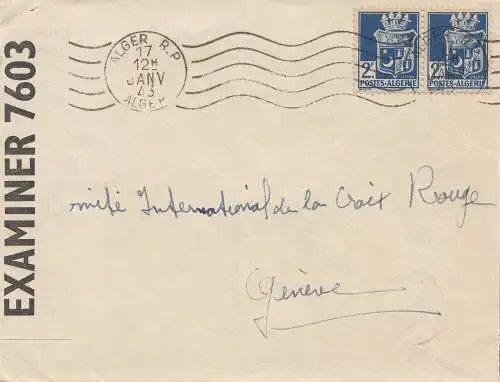 EXAMINER 7603
ALGER R.P.
17
12H
JANV
43
ALGER
2F
POSTES-ALGERIE
2F
POSTES-ALGERIE
omité International de la Croix Rouge
Genève